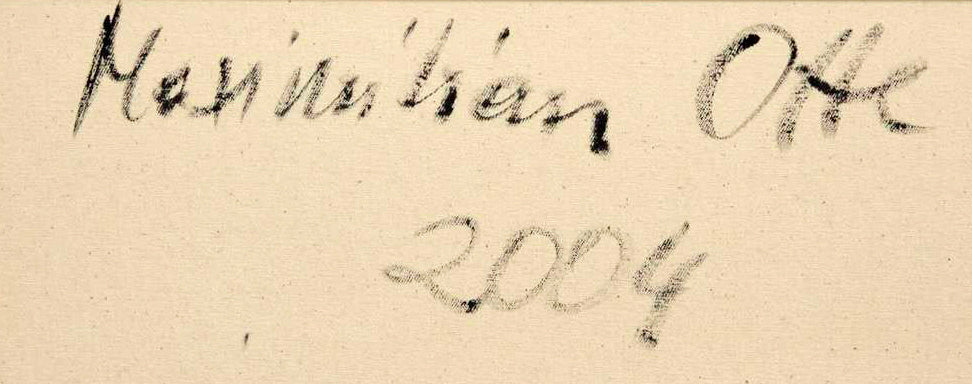 Maximilian Otte
2004